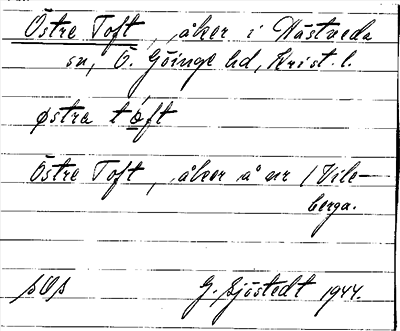 Östre Toft, åker i Hästveda
sn, Ö. Göinge hd, Krist. l.
østra tǻft
Östre Toft, åker å nr 1 Vile-
berga.
G. Sjöstedt 1944.